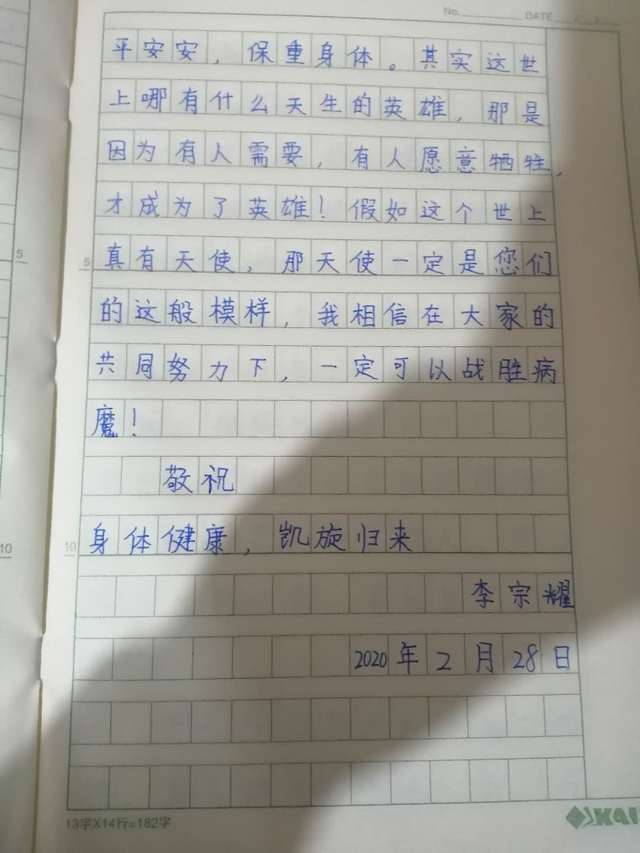 No. DATE / /
平安安，保重身体。其实这世
上哪有什么天生的英雄，那是
因为有人需要，有人愿意牺牲，
才成为了英雄！假如这个世上
真有天使，那天使一定是您们
的这般模样，我相信在大家的
共同努力下，一定可以战胜病
魔！
敬祝
身体健康，凯旋归来
李宗耀
2020年2月28日
5
5
10
10
13字X14行=182字